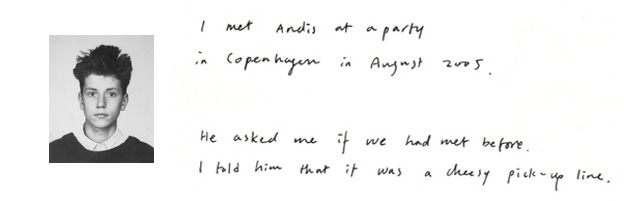 I met Andis at a party
in Copenhagen in August 2005.
He asked me if we had met before.
I told him that it was a cheesy pick-up line.